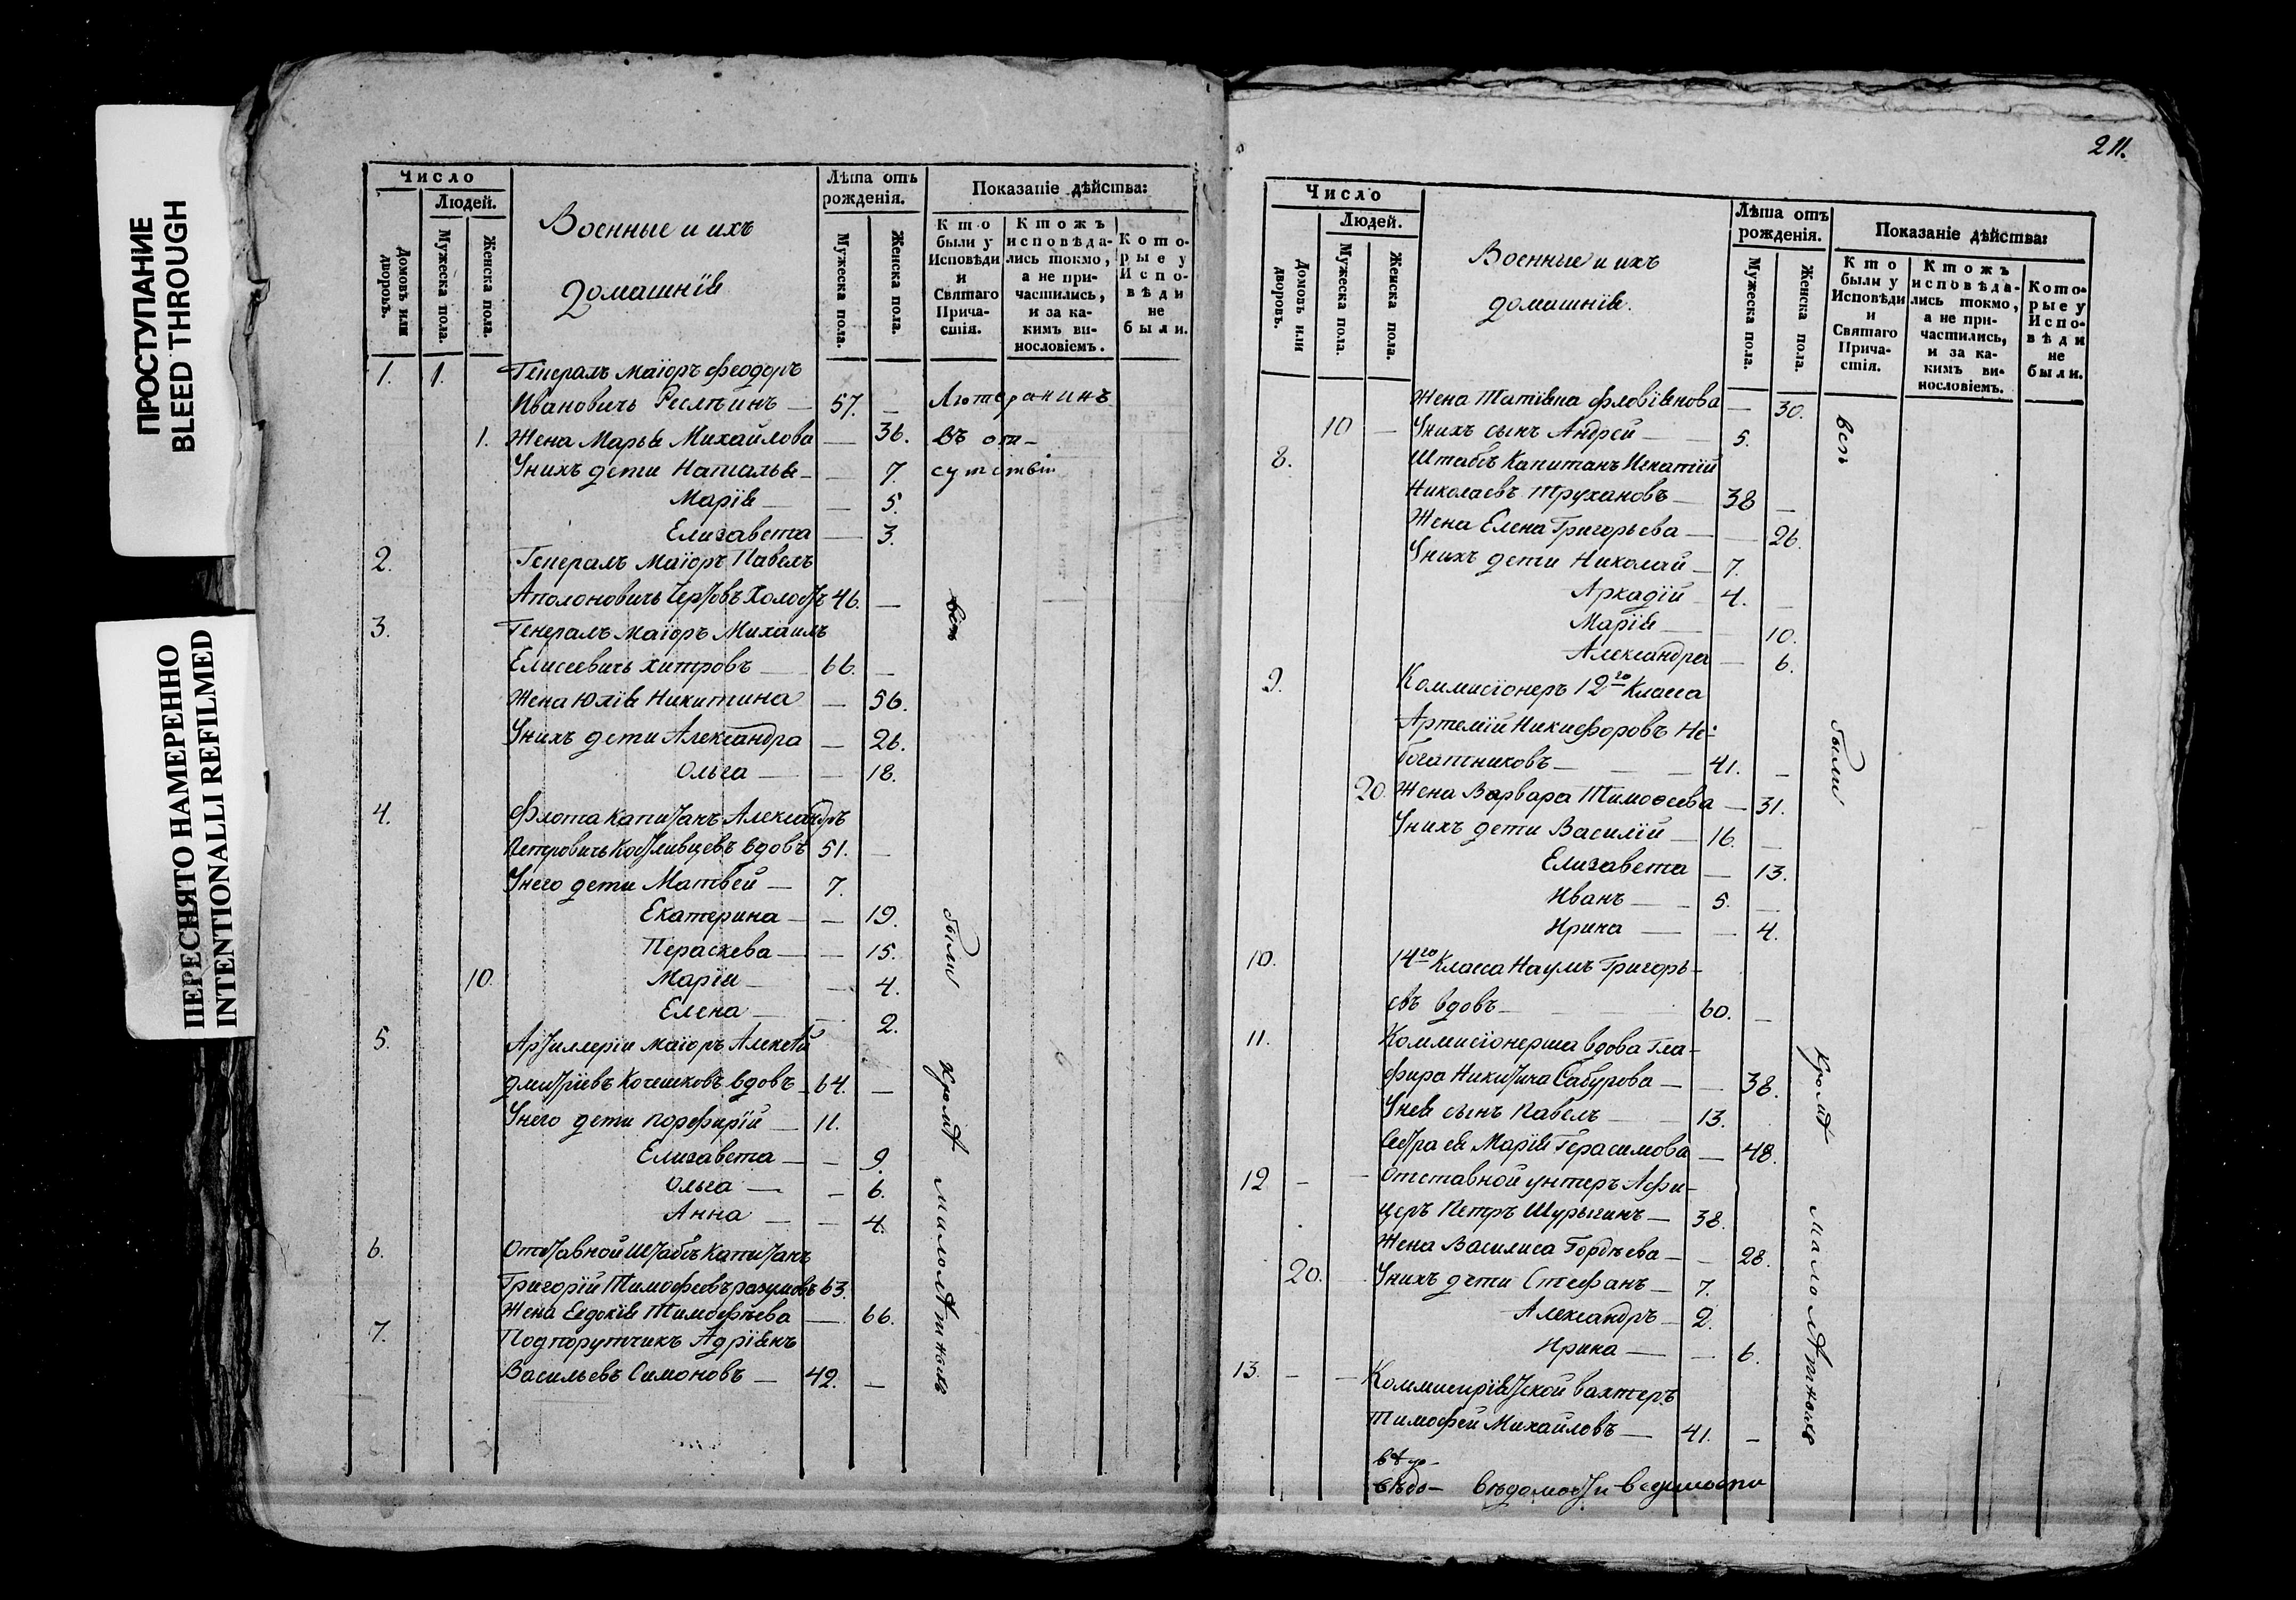 ПРОСТУПАНИЕ
BLEED THROUGH
ПЕРЕСНЯТО НАМЕРЕННО
INTENTIONALLI REFILMED
Число
Людей.
Домовъ или дворовъ.
Мужеска пола.
Женска пола.
Военные и ихъ
домашнїѧ
Лѣта отъ рожденія.
Мужеска пола.
Женска пола.
Показаніе дѣйства:
Кто были у Исповѣди и Святаго Прича-стія.
Ктожъ исповѣда-лись токмо, а не при-частились, и за ка-кимъ ви-нословіемъ.
Кото-рые у Испо-вѣди не были.
1. 1. Генералъ Маїоръ Феодоръ
Ивановичь — 57. — Лютеранинъ
1. Жена Марьѧ Михайлова — 36. въ от-
Унихъ дети Натальѧ — — 7. сутствїи
Марїѧ — — 5.
Елизавета — 3.
2. Генералъ Маїоръ Павелъ
Аполоновичь Холостъ 46. —
3. Генералъ Маїоръ Михаилъ
Елисеевичь Хитровъ — 66. —
Жена Юлїѧ Никитина — 56.
Унихъ дети Александра — 26.
Ольга — — 18.
4. Флота Капитанъ Александръ
Петровичь Костливцевъ вдовъ 51. —
Унего дети Матвей — 7.
Екатерина — — 19.
Параскева — — 15.
10. Марїѧ — — 4.
Елена — — 2.
5. Артиллерїи Маїоръ Алексѣй
Дмитрїевъ Кочешковъ вдовъ — 64. —
Унего дети Порфирїй — 11.
Елизавета — — 9.
Ольга — — 6.
Анна — — 4.
6. Отставной Штабъ Капитанъ
Григорїй Тимофеевъ разумовъ 63.
Жена Евдокїѧ Тимофѣева — 66.
7. Подпорутчикъ Адрїѧнъ
Васильевъ Симоновъ — 42. —
всѣ
были
кромѣ
малолѣтнымъ
211.
Число
Людей.
Домовъ или дворовъ.
Мужеска пола.
Женска пола.
Военные и ихъ
домашнїѧ.
Лѣта отъ рожденія.
Мужеска пола.
Женска пола.
Показаніе дѣйства:
Кто были у Исповѣди и Святаго Прича-стія.
Ктожъ исповѣда-лись токмо, а не при-частились, и за ка-кимъ ви-нословіемъ.
Кото-рые у Испо-вѣди не были.
Жена Татїѧна — 30.
10 — Унихъ сынъ Андрей — 5.
8. Штабсъ Капитанъ Игнатїй
Николаевъ Трухановъ — 38 —
Жена Елена Григорьева — — 26.
Унихъ дети Николай — 7.
Аркадїй 4. —
Марїѧ — 10.
Александра — 6.
9. Коммисїонеръ 12го Класса
Артемїй Никифоровъ Не-
богатниковъ — 41. —
20. Жена Варвара Тимофеева — 31.
Унихъ дети Василїй — 16. —
Елизавета — 13.
Иванъ — 5. —
Ирина — — 4.
10. 14го Класса Наумъ Григорь-
евъ вдовъ — 60. —
11. Коммисїонерша вдова Гла-
фира Никитина Сабурова — — 38.
Унеѧ сынъ Павелъ — 13.
Сестра еѧ Марїѧ Герасимова — 48.
12 — — Отставной унтеръ Афи-
церъ Петръ Шурыгинъ — 38.
Жена Василиса Гордѣева — — 28.
20. — Унихъ дети Стефанъ — 7.
Александръ — 2.
Ирина — — 6.
13. — — Коммисарїѧтской вахтеръ
Тимофей Михайловъ — 41. —
всѣ
были
кромѣ
малолѣтнымъ
вѣдо — вѣдомости ведомости